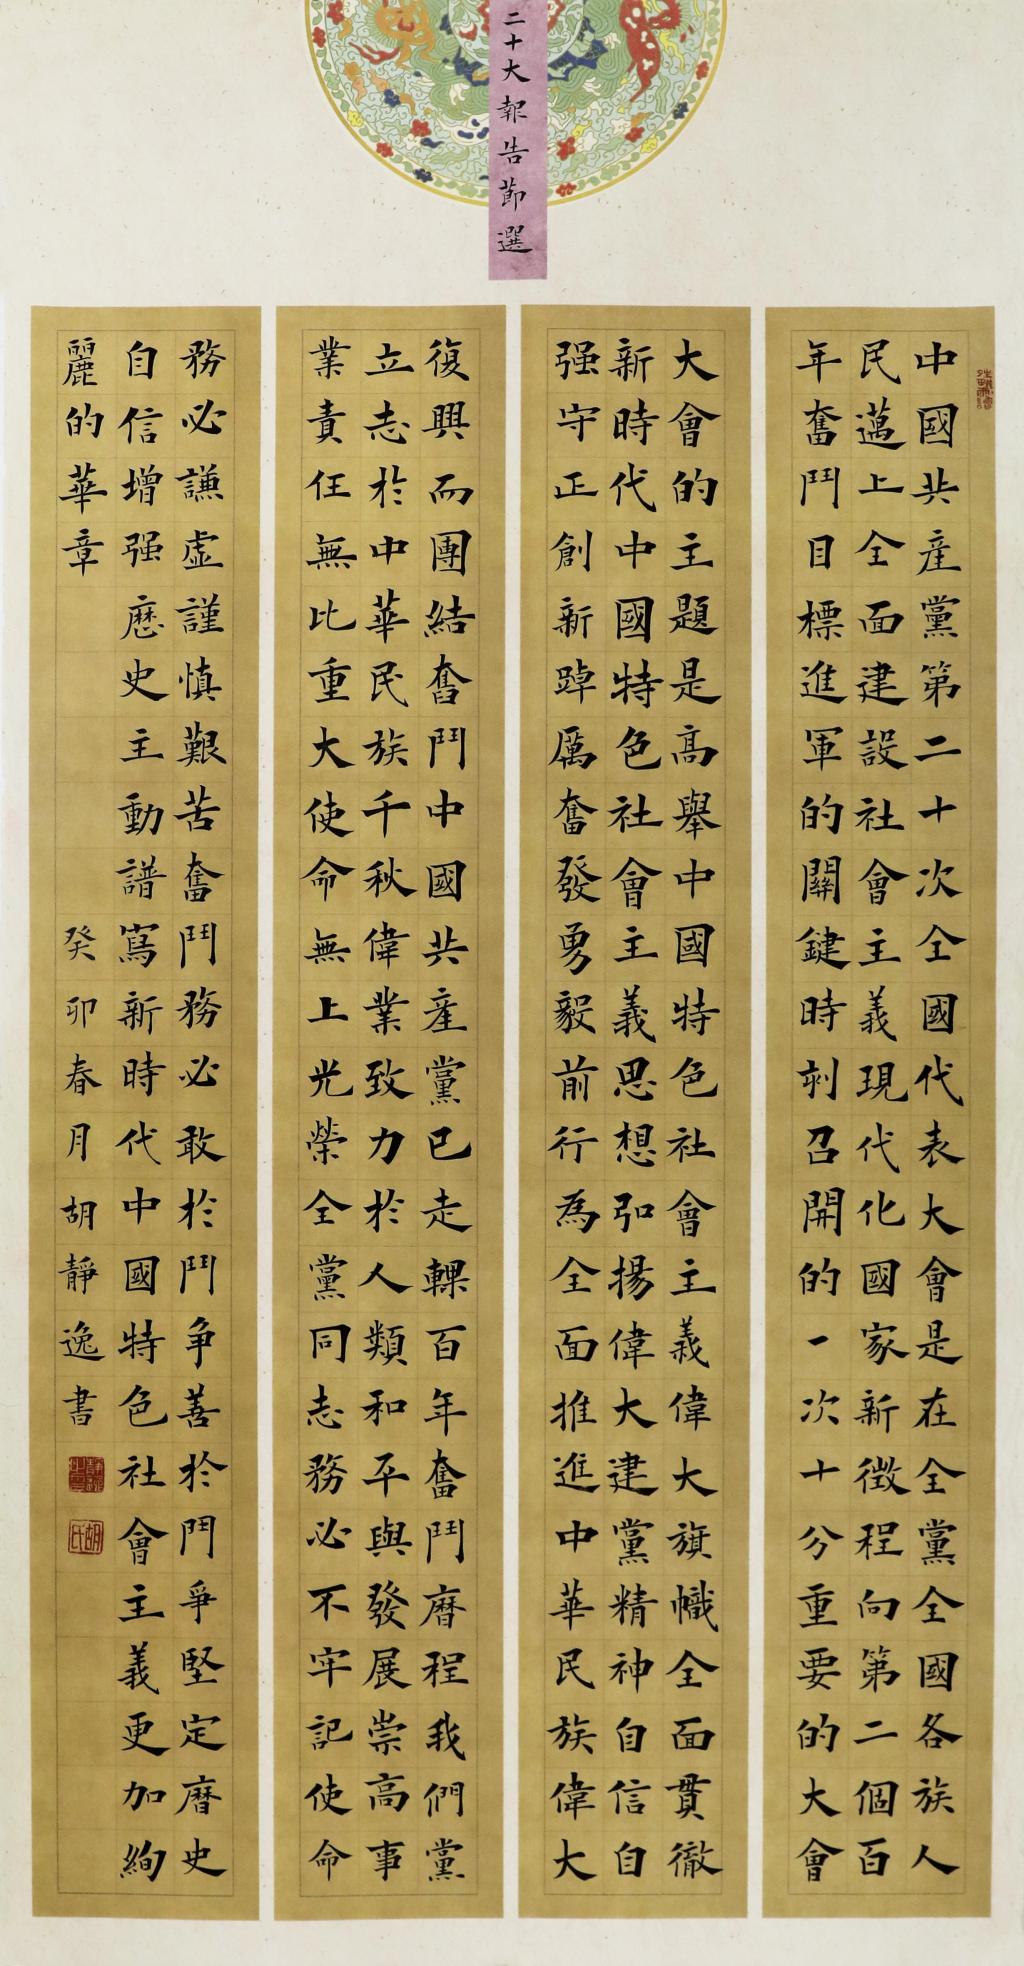 二十大報告節選
中國共產黨第二十次全國代表大會是在全黨全國各族人
民邁上全面建設社會主義現代化國家新徵程向第二個百
年奮鬥目標進軍的關鍵時刻召開的一次十分重要的大會
大會的主題是高舉中國特色社會主義偉大旗幟全面貫徹
新時代中國特色社會主義思想弘揚偉大建黨精神自信自
强守正創新踔厲奮發勇毅前行為全面推進中華民族偉大
復興而團結奮鬥中國共產黨已走輠百年奮鬥曆程我們黨
立志於中華民族千秋偉業致力於人類和平與發展崇高事
業責任無比重大使命無上光榮全黨同志務必不牢記使命
務必謙虛謹慎艱苦奮鬥務必敢於鬥争善於鬥爭堅定曆史
自信增强歷史主動譜寫新時代中國特色社會主義更加絢
麗的華章
癸卯春月胡靜逸書
胡氏